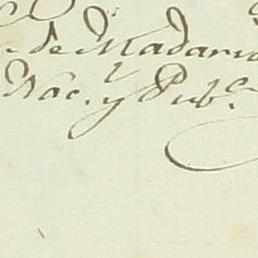 de Madari
Nac. y Pub.co